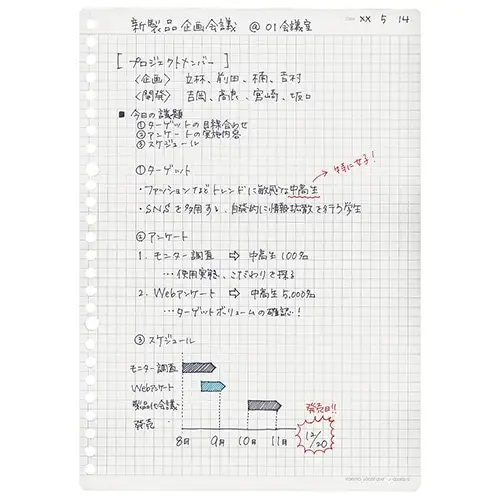 新製品企画会議 @01会議室
XX 5 14
[プロジェクトメンバー]
〈企画〉 立林、前田、楠、吉村
〈開発〉 吉岡、高良、宮崎、坂口
■ 今日の議題
①ターゲットの目線合わせ
②アンケートの実施内容
③スケジュール
特に女子!
①ターゲット
・ファッションなどトレンドに敏感な中高生
・SNSを多用する、自発的に情報拡散を行う学生
②アンケート
1. モニター調査 ⇨ 中高生 100名
…使用実態、こだわりを探る
2. Webアンケート ⇨ 中高生 5,000名
…ターゲットボリュームの確認!
③スケジュール
モニター調査
Webアンケート
製品化会議
発売
発売日!!
12/20
8月 9月 10月 11月